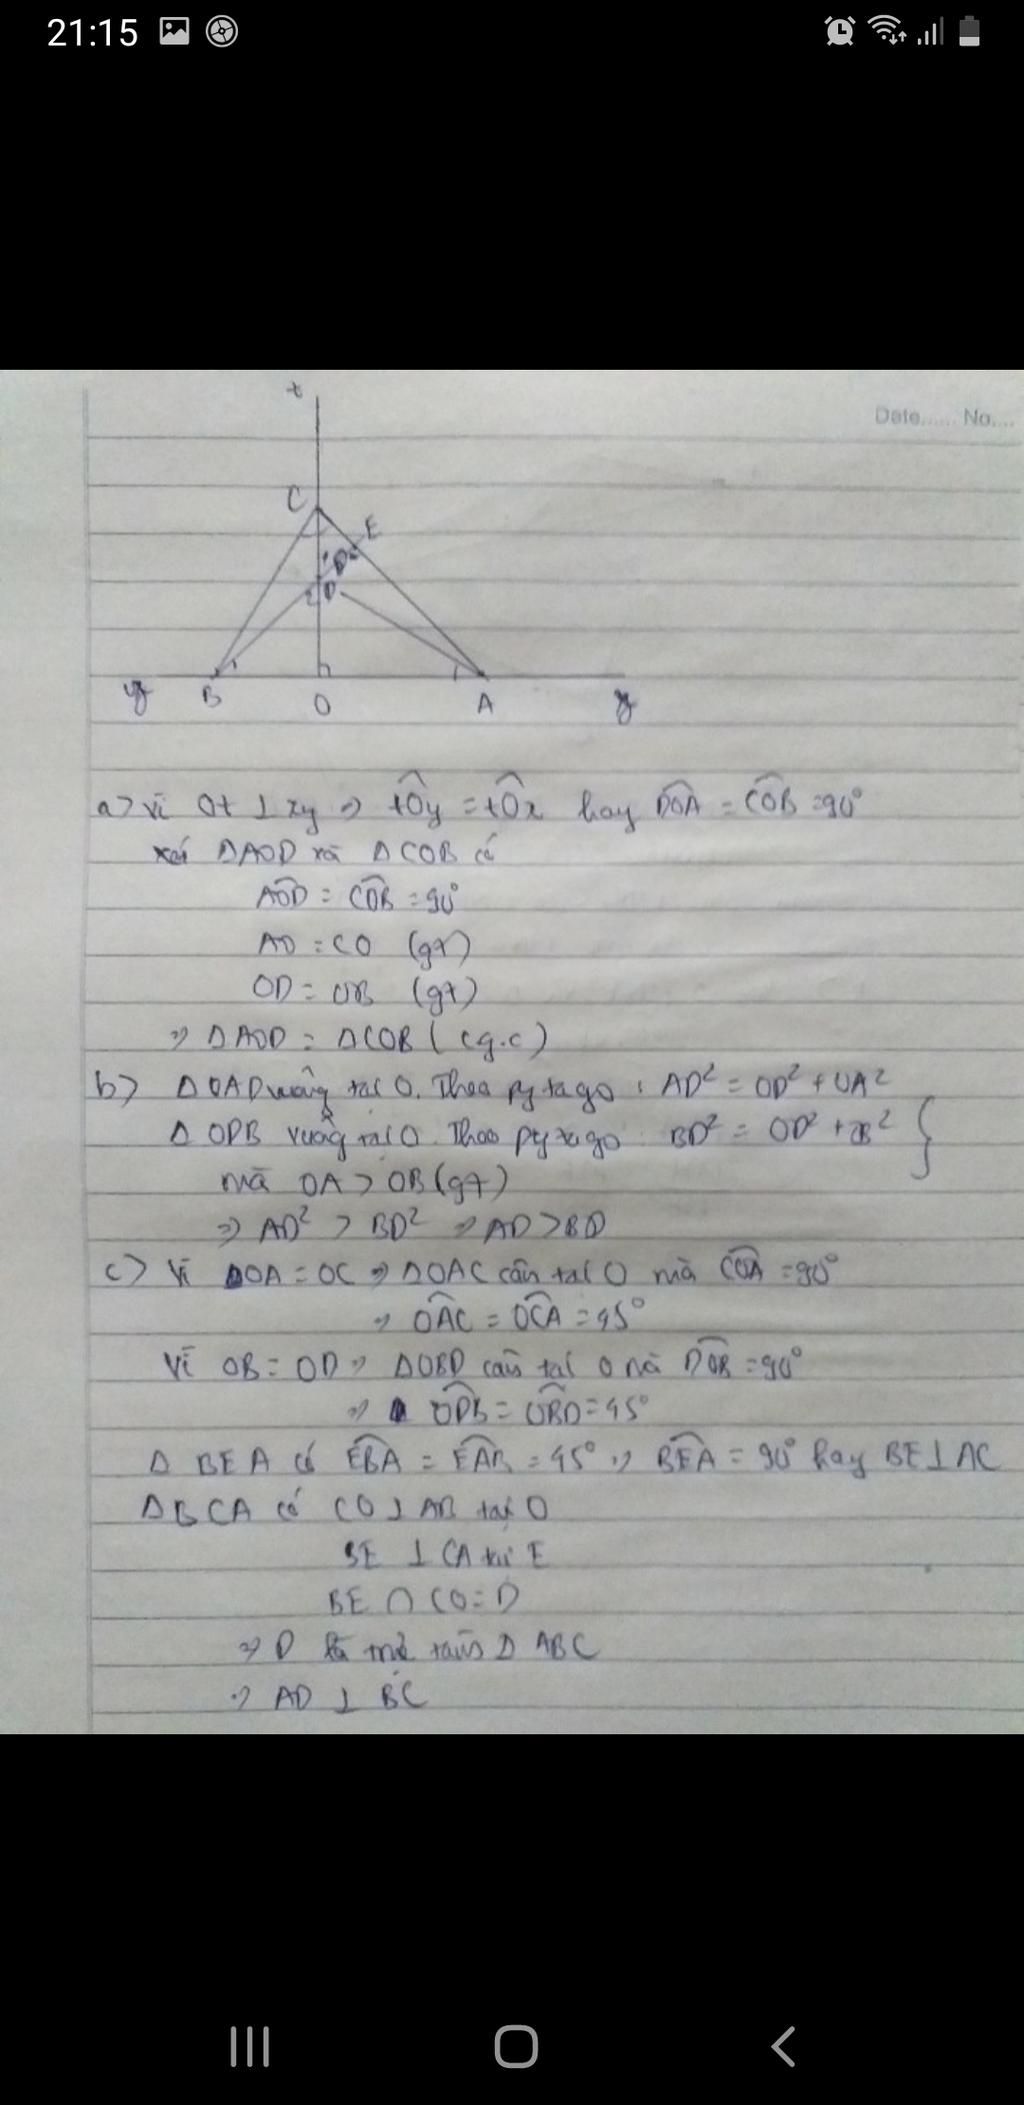 21:15
Date...... No....
t
C
E
D
B
O
A
y
a) Vì Ot ⊥ xy ⇒ tÔy = tÔx hay DÔA = CÔB = 90°
xét ΔAOD và ΔCOB có
AÔD = CÔB = 90°
AO = CO (gt)
OD = OB (gt)
⇒ ΔAOD = ΔCOB (c.g.c)
b) ΔOAD vuông tại O. Theo pytago : AD² = OD² + OA²
Δ ODB vuông tại O. Theo pytago BD² = OD² + OB²
mà OA > OB (gt)
⇒ AD² > BD² ⇒ AD > BD
c) Vì OA = OC ⇒ ΔOAC cân tại O mà CÔA = 90°
⇒ OÂC = OĈA = 45°
Vì OB = OD ⇒ ΔOBD cân tại O mà DÔB = 90°
⇒ ODB = OBD = 45°
Δ BEA có EBA = EAB = 45° ⇒ BEA = 90° hay BE ⊥ AC
ΔBCA có CO ⊥ AB tại O
BE ⊥ CA tại E
BE ∩ CO = D
⇒ D là tâm Δ ABC
⇒ AD ⊥ BC